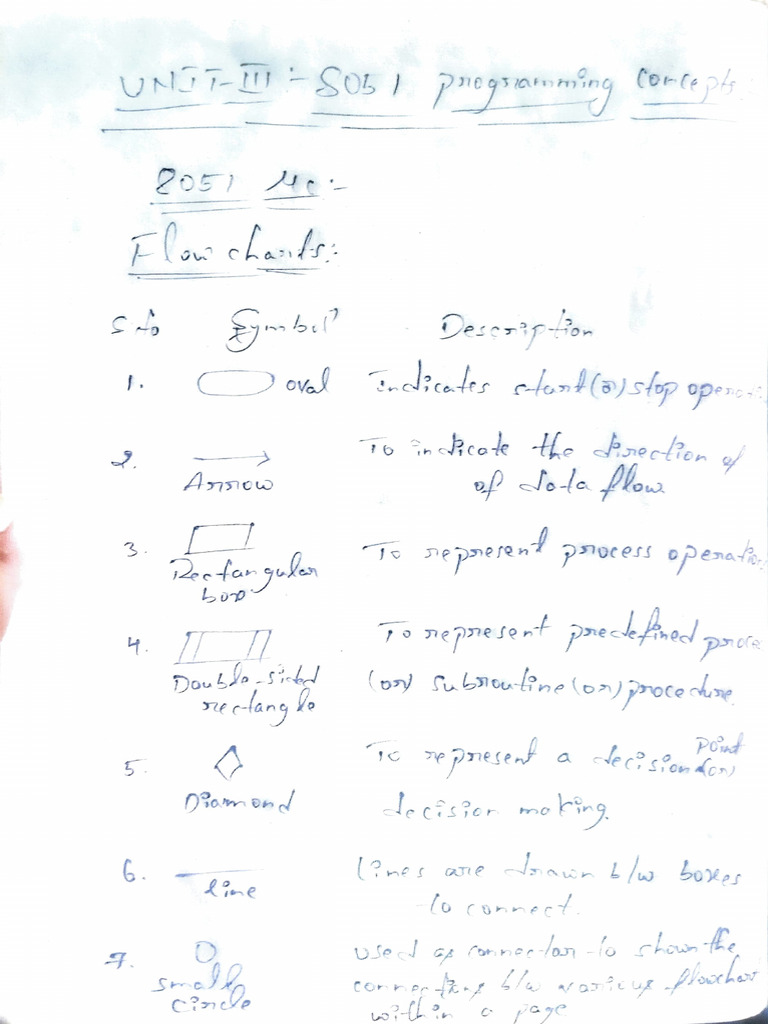 UNIT-III :- 8051 programming concepts
8051 Mc :-
Flow charts :-
S.No Symbol Description
1. oval Indicates start (or) stop operati
2. Arrow To indicate the direction of
of data flow
3. Rectangular box To represent process operation
4. Double-sided rectangle To represent predefined proce
(or) subroutine (or) procedure.
5. Diamond To represent a decision point (or)
decision making.
6. line lines are drawn b/w boxes
to connect.
7. small circle used as connector to shown the
b/w various flowchart
within a page